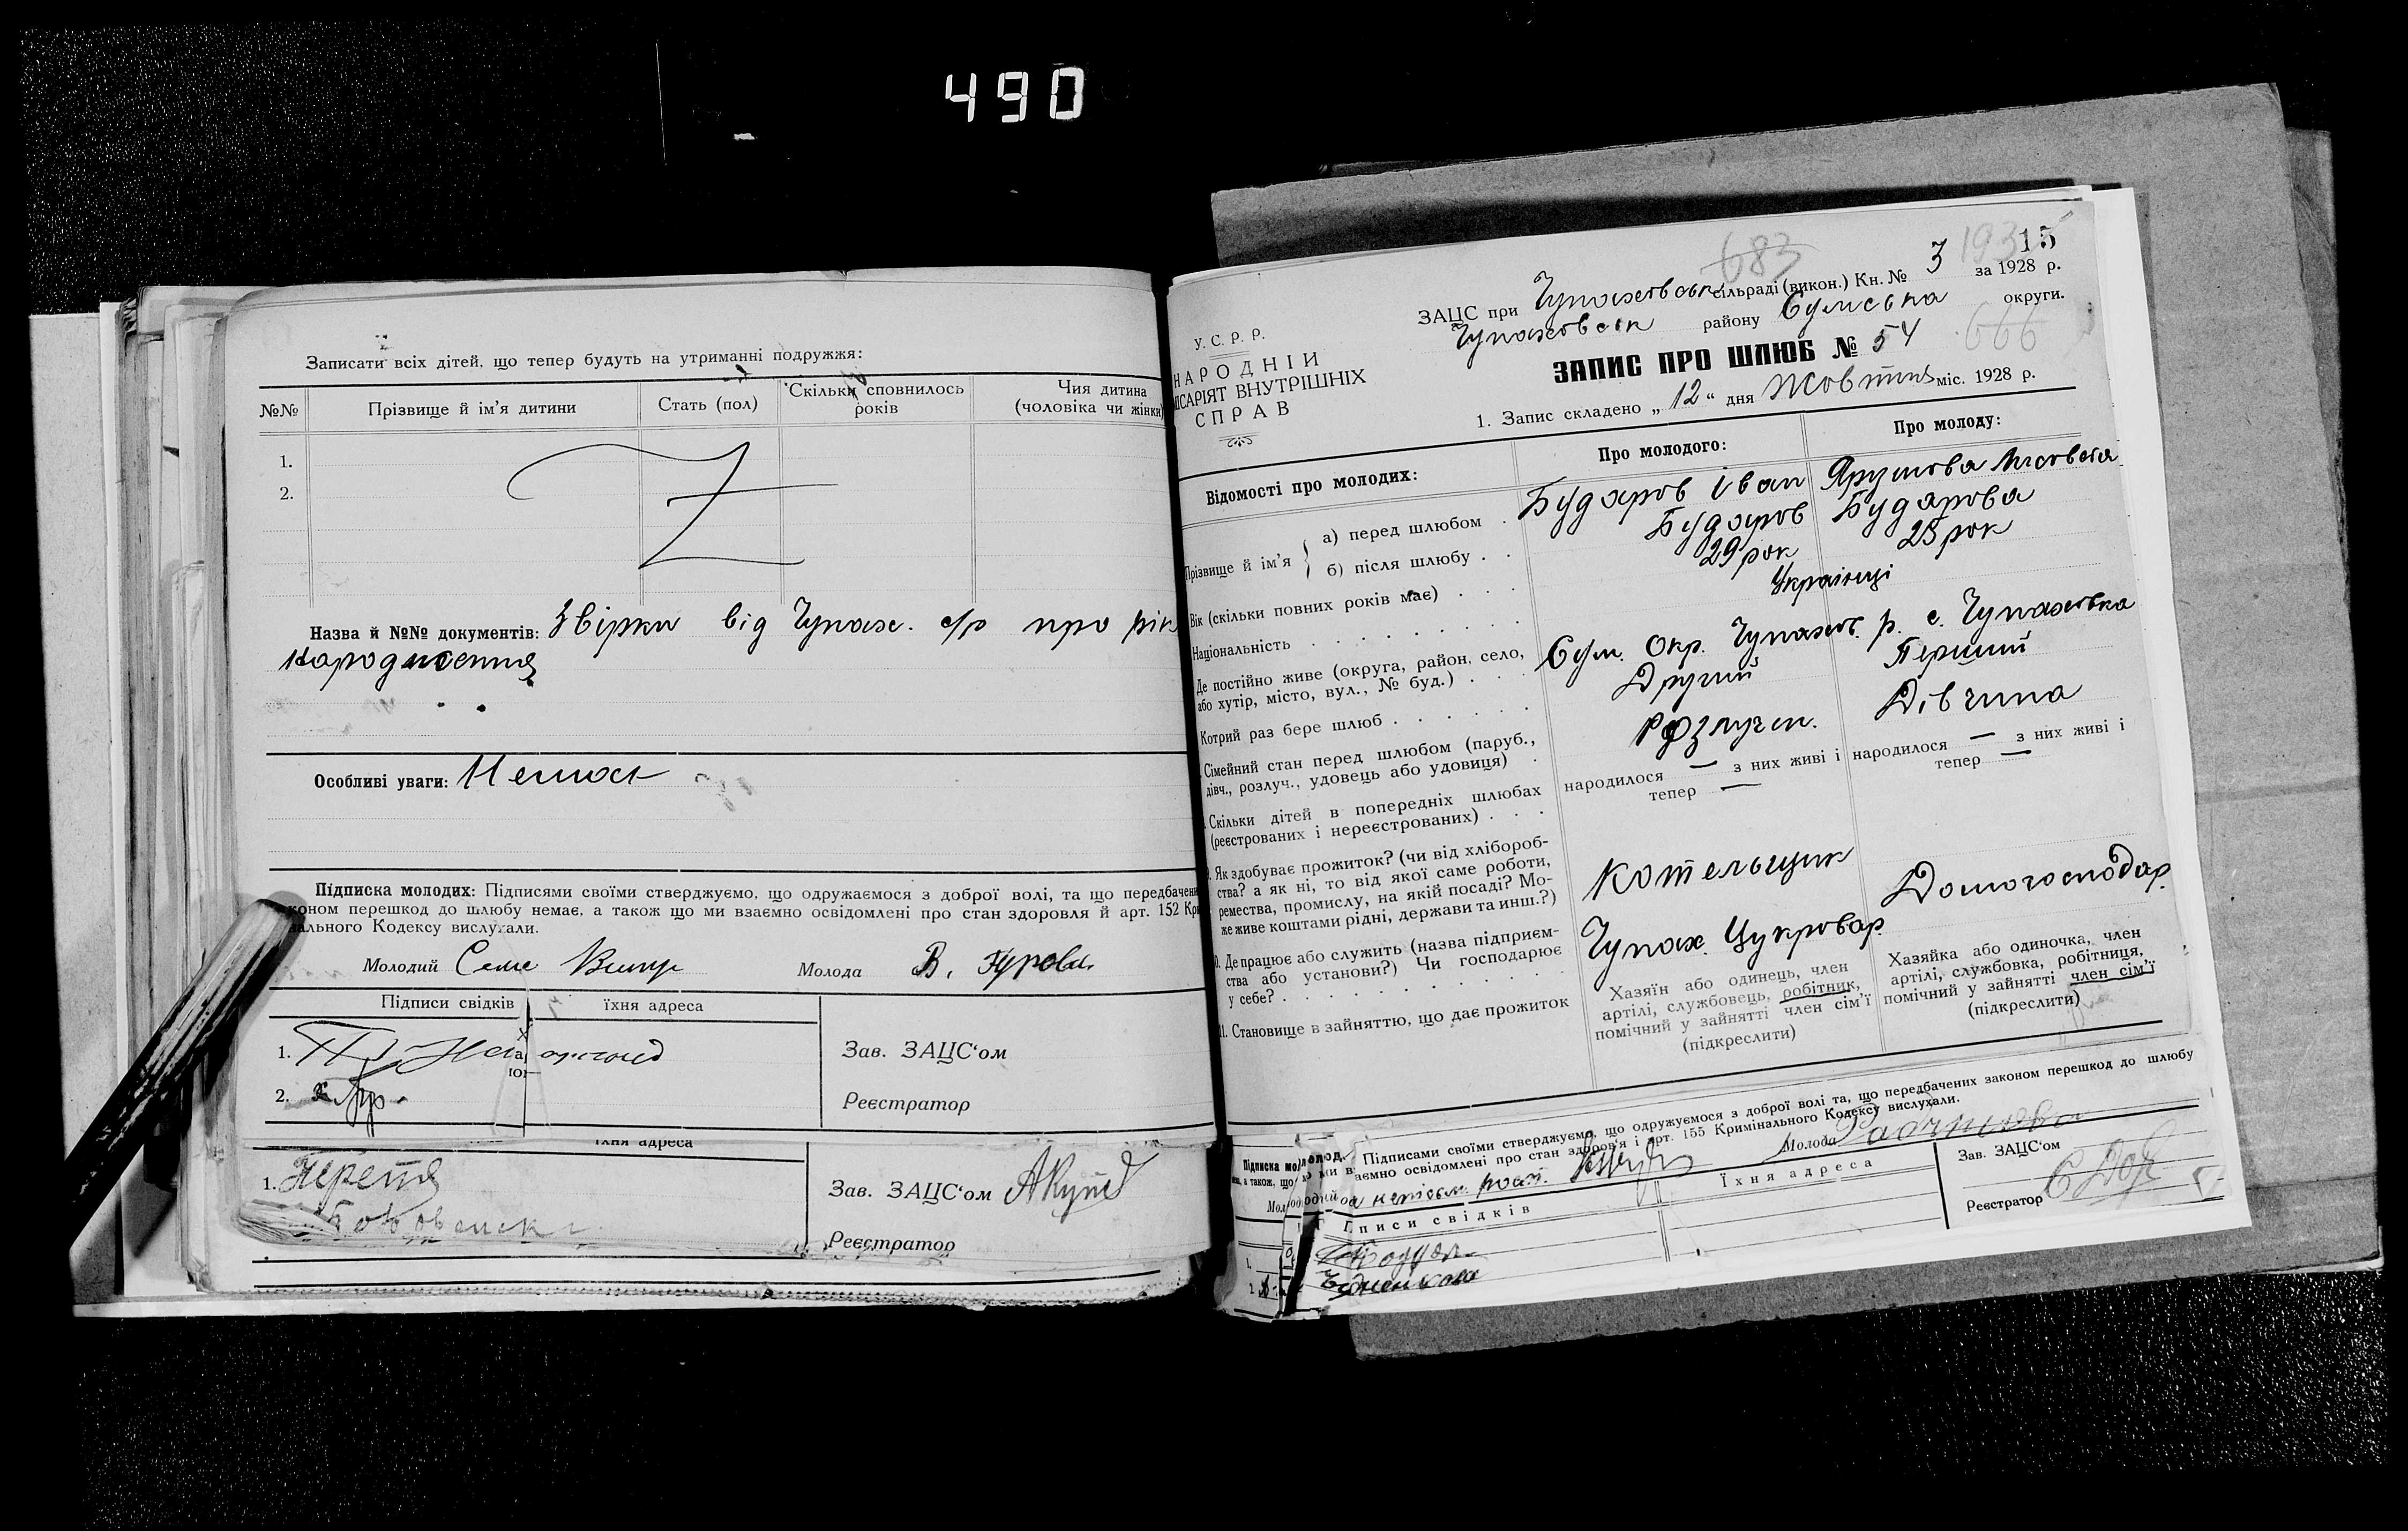 490
Записати всіх дітей, що тепер будуть на утриманні подружжя:
№№ Прізвище й ім'я дитини Стать (пол) Скільки сповнилось років Чия дитина (чоловіка чи жінки)
1.
2.
Назва й №№ документів: Звірки від Чупах. с/р про рік
народження
Особливі уваги: Немає
Підписка молодих: Підписями своїми стверджуємо, що одружаємося з доброї волі, та що передбачени
коном перешкод до шлюбу немає, а також що ми взаємно освідомлені про стан здоровля й арт. 152 Кри
нального Кодексу вислухали.
Молодий Молода В.
Підписи свідків їхня адреса
1.
Зав. ЗАЦС'ом
2.
Реєстратор
їхня адреса
1.
Зав. ЗАЦС'ом
Реєстратор
683 193 15
ЗАЦС при Чупахівськ сільраді (викон.) Кн. № 3 за 1928 р.
Чупахівськ району Сумська округи.
666
У. С. Р. Р.
НАРОДНІЙ
ІСАРІЯТ ВНУТРІШНІХ
СПРАВ
ЗАПИС ПРО ШЛЮБ № 54
1. Запис складено „ 12 " дня Жовтня міс. 1928 р.
Відомості про молодих: Про молодого: Про молоду:
Прізвище й ім'я { а) перед шлюбом . Бударов Іван
б) після шлюбу . . Бударов Бударова
Вік (скільки повних років має) . . . 29 рок 23 рок
Національність . . . . . . . . . Українці
Де постійно живе (округа, район, село,
або хутір, місто, вул., № буд.) . . . Сум. Окр. Чупахов. р. с. Чупаховка
Котрий раз бере шлюб . . . . . . Другий Перший
Сімейний стан перед шлюбом (паруб.,
дівч., розлуч., удовець або удовиця) . Розлучен. Дівчина
Скільки дітей в попередніх шлюбах
(реєстрованих і нереєстрованих) . . .
народилося — з них живі і
тепер —
народилося — з них живі і
тепер —
9. Як здобуває прожиток? (чи від хлібороб-
ства? а як ні, то від якої саме роботи,
ремества, промислу, на якій посаді? Мо-
же живе коштами рідні, держави та инш.?)
Котельщик Домогосподар.
10. Де працює або служить (назва підприєм-
ства або установи?) Чи господарює
у себе? . . . . . . . . . . . .
Чупах. Цукровар.
11. Становище в зайняттю, що дає прожиток
Хазяїн або одинець, член
артілі, службовець, робітник,
помічний у зайнятті член сім'ї
(підкреслити)
Хазяйка або одиночка, член
артілі, службовка, робітниця,
помічний у зайнятті член сім'ї
(підкреслити)
Підписами своїми стверджуємо, що одружуємося з доброї волі та, що передбачених законом перешкод до шлюбу
аємно освідомлені про стан здоров'я і арт. 155 Кримінального Кодексу вислухали.
Молода
Підписка мо
а також, що
Мол
писи свідків Їхня адреса
Зав. ЗАЦС'ом
Реєстратор
1.
2.